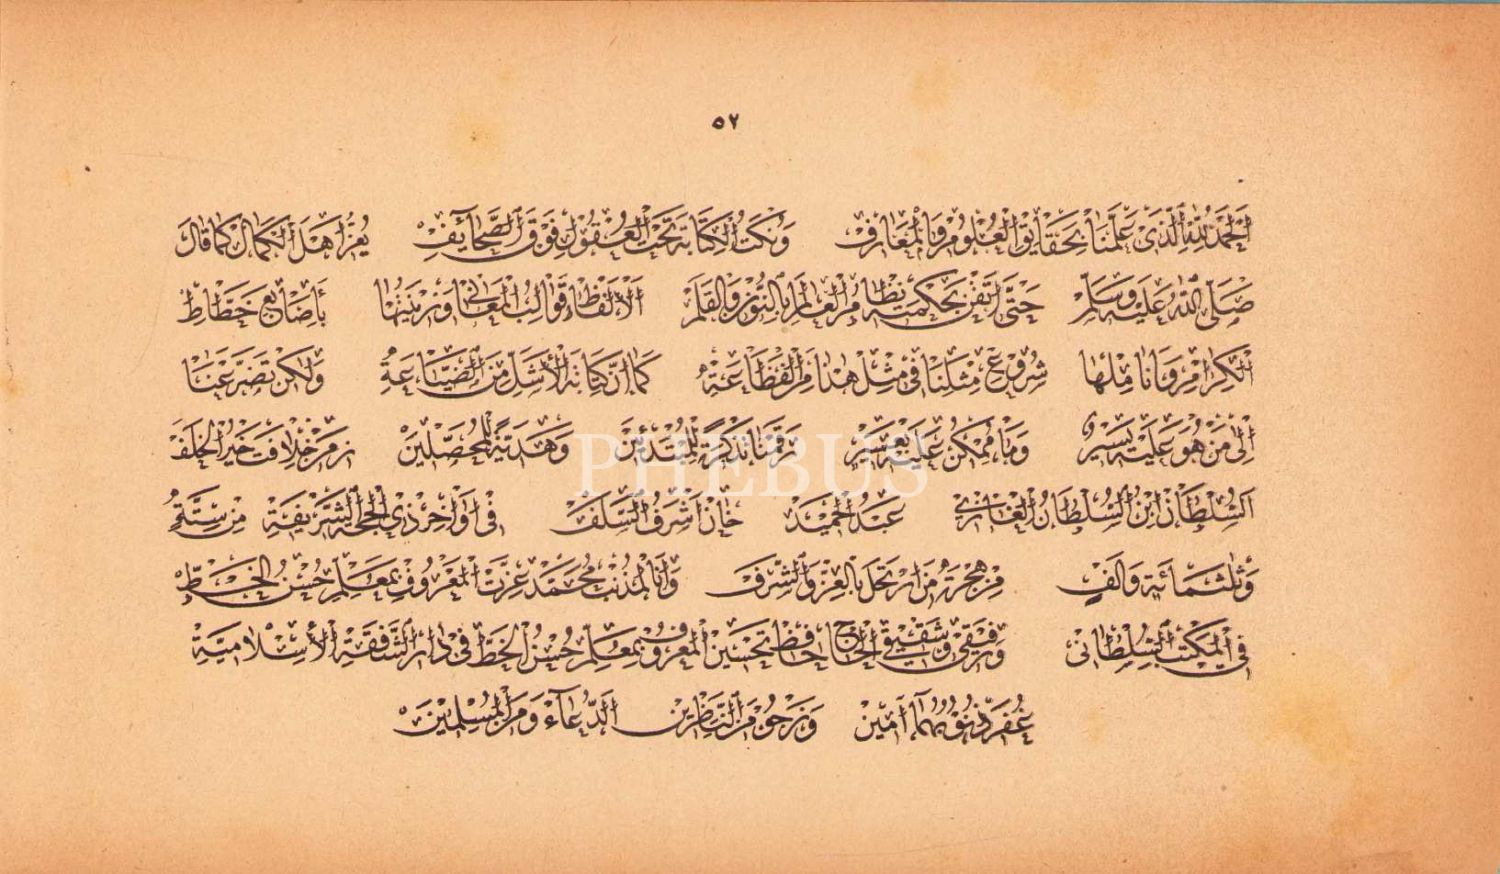 ٥٧
الحمد لله الذی علمنا بحقایق العلوم والمعارف ونكت الكتابة تحت العقول فوق الصحآئف یعزا هل الكمال كما قال
صلی الله علیه وسلم حتی اتقن بحكمته نظام العالم بالنور والقلم الالفاظ قوالب المعانی وزینتها باصابع خطاط
الكرام وانا شروع مثلنا فی مثل هذا من الفظاعة كما ان كتابة الاشل من الضیاعة ولكن تضرعنا
الی من هو علیه یسیر وما ممكن علیه بعسیر رقمنا تذكرة للمبتدئین وهدیة للمحصلین زمن خلافت خیر الخلف
السلطان ابن السلطان الغازی عبد الحمید خان اشرف السلف فی اواخر ذی الحجة الشریفة من ستة
وثلثمائة والف من هجرة من ارتحل بالعز والشرف وانا المذنب محمد عزت المعروف بمعلم حسن الخط
فی المكتب السلطانی ورفیقی وشقیقی الحاج حافظ تحسین المعروف بمعلم حسن الخط فی دار الشفقة الاسلامیة
غفر ذنوبهما آمین ونرجو من الناظرین الدعآء ومن المسلمین
PHEBUS